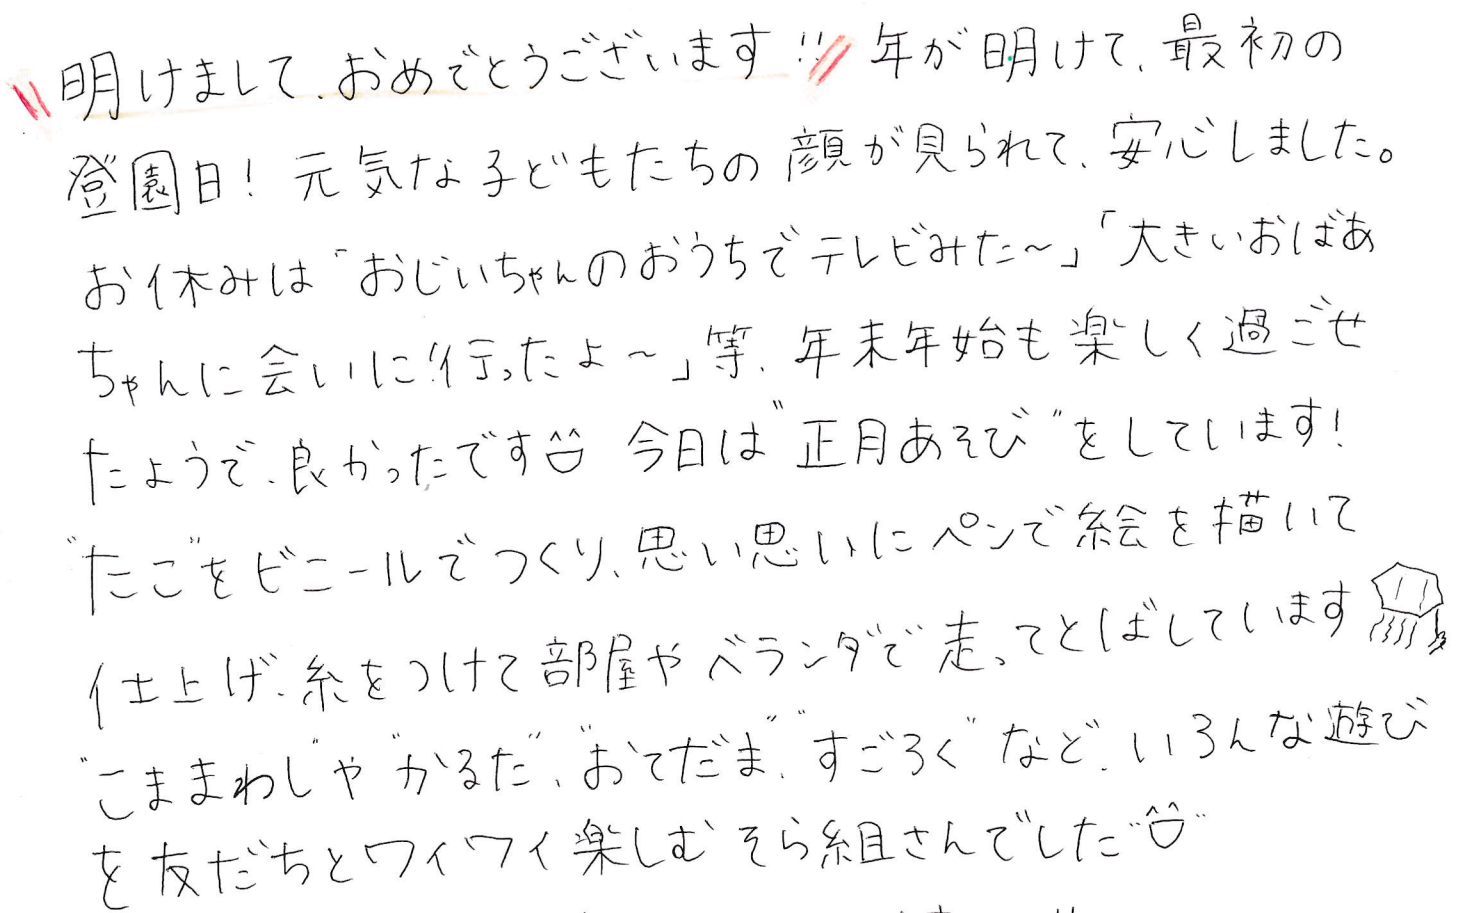 明けまして、おめでとうございます!! 年が明けて、最初の
登園日! 元気な子どもたちの顔が見られて、安心しました。
お休みは「おじいちゃんのおうちでテレビみた～」「大きいおばあ
ちゃんに会いに行ったよ～」等、年末年始も楽しく過ごせ
たようで、良かったです 今日は"正月あそび"をしています!
"たこ"をビニールでつくり、思い思いにペンで絵を描いて
仕上げ、糸をつけて部屋やベランダで走ってとばしています
"こままわし"や"かるた"、"おてだま""すごろく"など、いろんな遊び
を友だちとワイワイ楽しむそら組さんでした